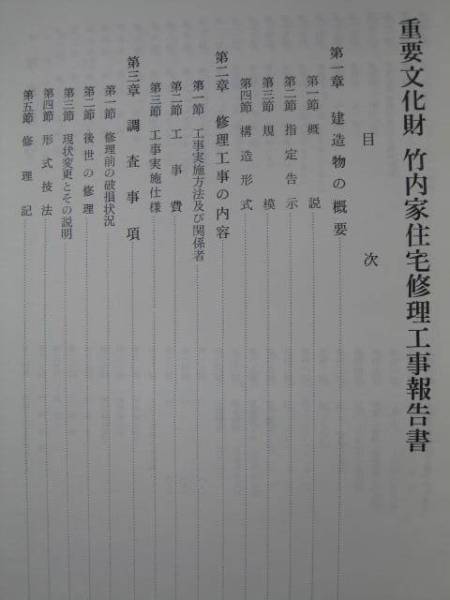 重要文化財 竹内家住宅修理工事報告書
目次
第一章 建造物の概要
第一節 概説
第二節 指定告示
第三節 規模
第四節 構造形式
第二章 修理工事の内容
第一節 工事実施方法及び関係者
第二節 工事費
第三節 工事実施仕様
第三章 調査事項
第一節 修理前の破損状況
第二節 後世の修理
第三節 現状変更とその説明
第四節 形式技法
第五節 修理記